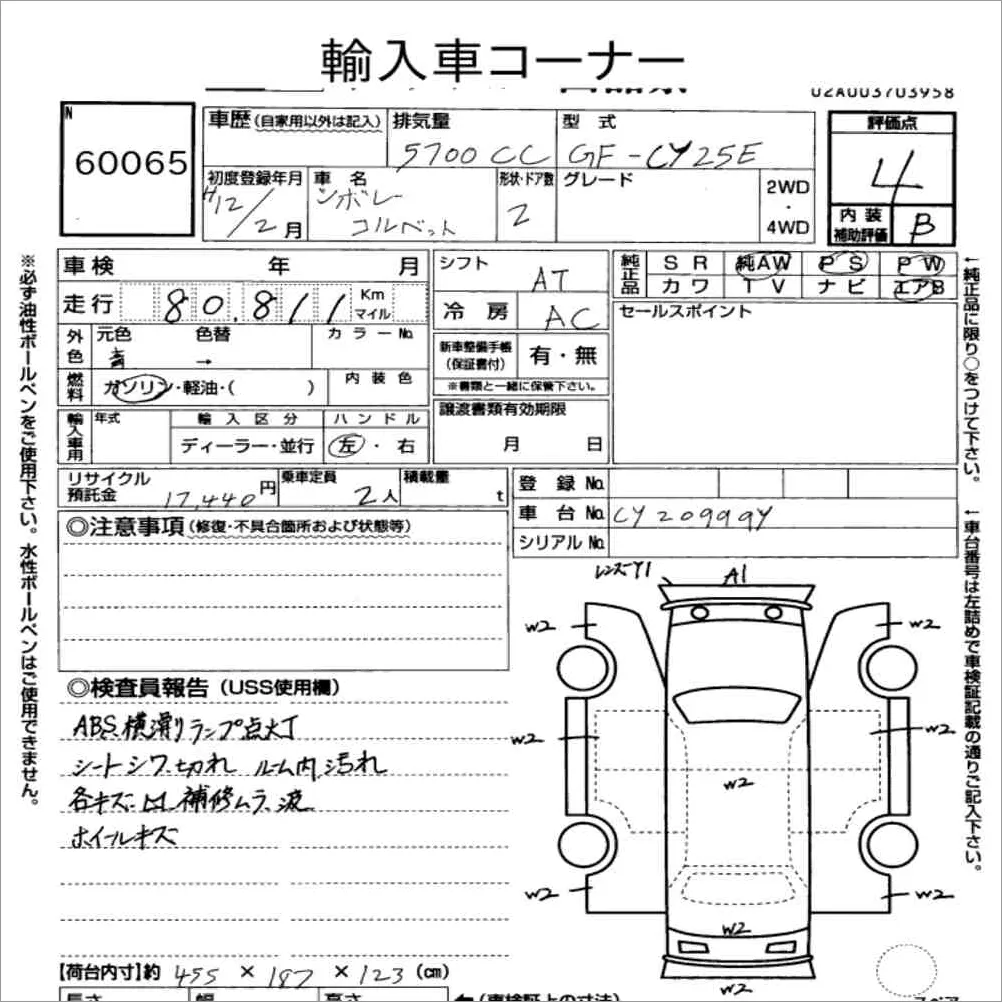 輸入車コーナー
02A003703958
N
60065
車歴(自家用以外は記入)
排気量
5700 CC
型 式
GF-CY25E
評価点
4
初度登録年月
H12/2月
車 名
シボレー
コルベット
形状・ドア数
2
グレード
2WD
・
4WD
内装
補助評価
B
車検 年 月
走行 80,811 Km
マイル
外色
元色 色替
青 →
カラーNo.
燃料
ガソリン・軽油・( )
内装色
輸入車用
年式
輸入区分
ディーラー・並行
ハンドル
左・右
シフト
AT
冷房
AC
新車整備手帳
(保証書付)
有・無
※書類と一緒に保管下さい。
譲渡書類有効期限
月 日
純正品
SR 純AW PS PW
カワ TV ナビ エアB
セールスポイント
リサイクル
預託金
17,440円
乗車定員
2人
積載量
t
登録No.
車台No. CY20999Y
シリアルNo.
◎注意事項(修復・不具合箇所および状態等)
◎検査員報告(USS使用欄)
ABS,横滑りランプ点灯
シートシワ,切れ ルーム内汚れ
各キズ凹補修ムラ,波
ホイールキズ
レンズY1
A1
W2
W2
W2
W2
W2
W2
W2
W2
W2
【荷台内寸】約 455 × 187 × 123 (cm)
長さ 幅 高さ
←(車検証上の寸法)
スペア
※必ず油性ボールペンをご使用下さい。水性ボールペンはご使用できません。
←純正品に限り○をつけて下さい。
←車台番号は左詰めで車検証記載の通りご記入下さい。